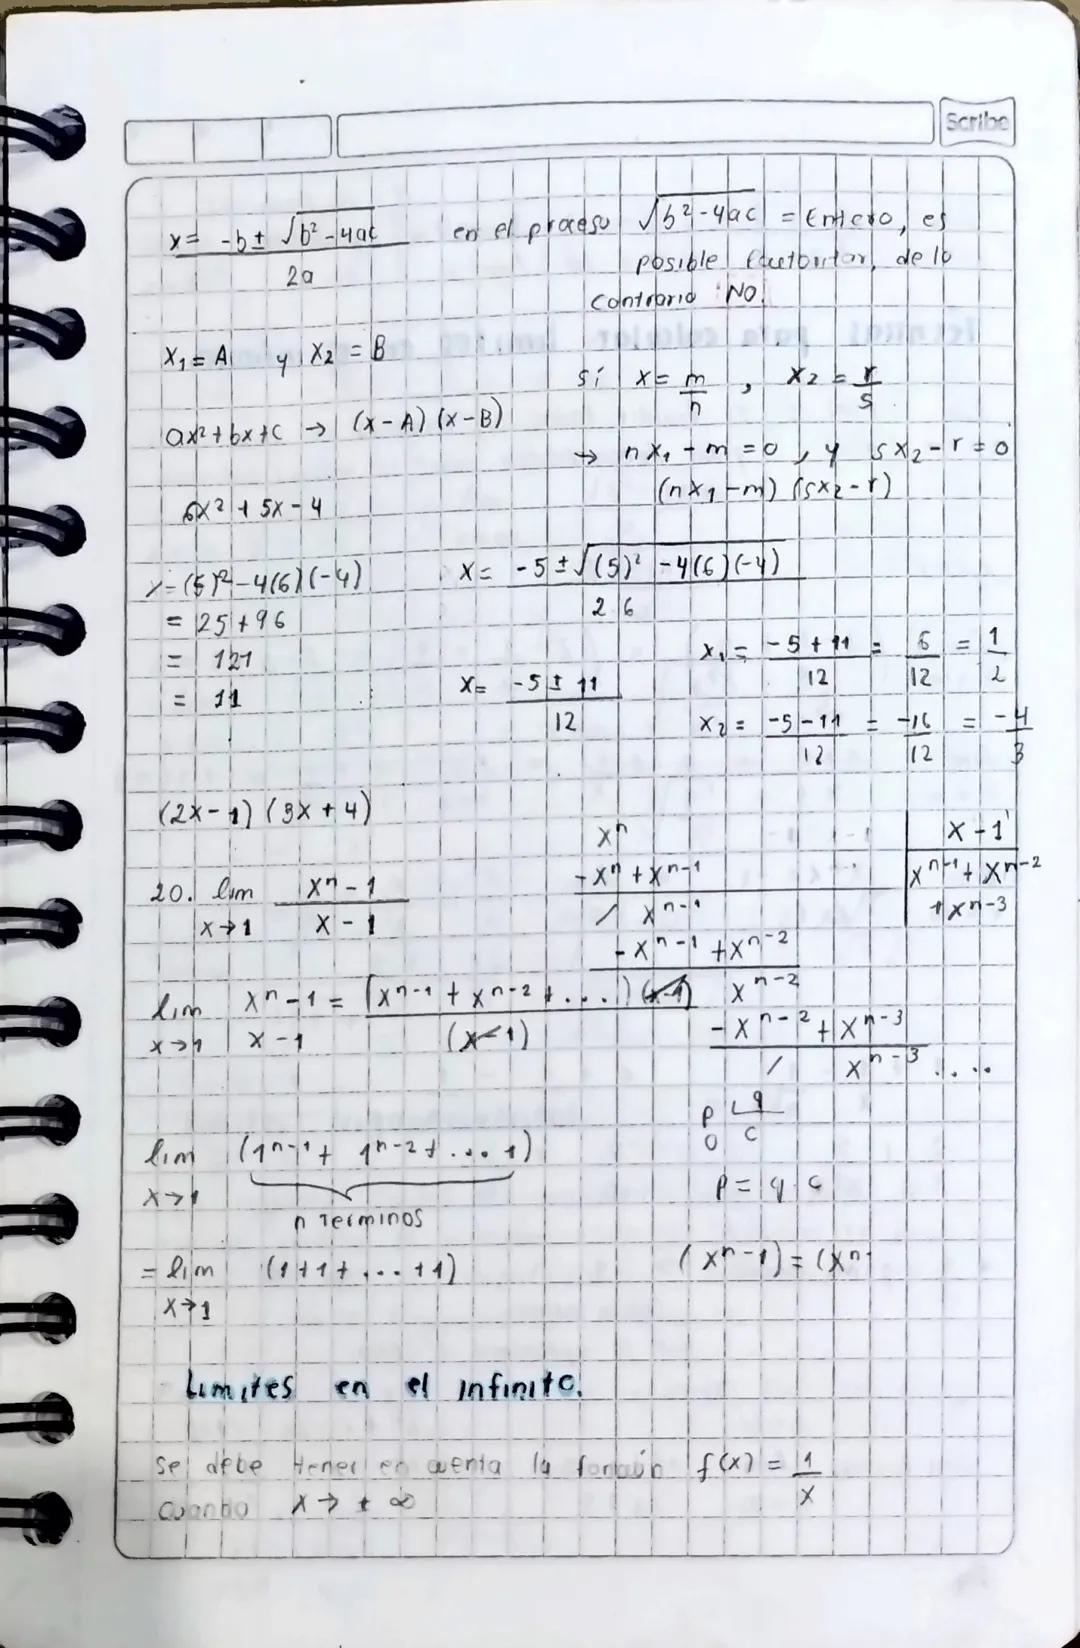 Scribe
x = -b ± √b² - 4ac / 2a
en el proceso √b² - 4ac = Entero, es
posible factorizar, de lo
contrario NO.
x₁ = A y x₂ = B
sí x = m/n , x₂ = r/s
ax² + bx + c → (x - A) (x - B)
→ nx₁ - m = 0 , y sx₂ - r = 0
(nx₁ - m) (sx₂ - r)
6x² + 5x - 4
x = (5)² - 4(6)(-4)
= 25 + 96
= 121
= 11
x = -5 ± √(5)² - 4(6)(-4) / 2 6
x = -5 ± 11 / 12
x₁ = -5 + 11 / 12 = 6/12 = 1/2
x₂ = -5 - 11 / 12 = -16/12 = -4/3
(2x - 1) (3x + 4)
20. lim x→1 xⁿ - 1 / x - 1
xⁿ
x - 1
-xⁿ + xⁿ⁻¹
xⁿ⁻¹ + xⁿ⁻²
+ xⁿ⁻³
/ xⁿ⁻¹
-xⁿ⁻¹ + xⁿ⁻²
xⁿ⁻²
-xⁿ⁻² + xⁿ⁻³
/ xⁿ⁻³ ....
lim x→1 xⁿ - 1 / x - 1 = (xⁿ⁻¹ + xⁿ⁻² + ...) (x-1) / (x-1)
p q
0 c
p = q . c
lim x→1 (1ⁿ⁻¹ + 1ⁿ⁻² + ... 1)
n Terminos
= lim x→1 (1 + 1 + ... + 1)
(xⁿ - 1) = (xⁿ -
Limites en el infinito.
Se debe tener en cuenta la función f(x) = 1/x
cuando x → ± ∞